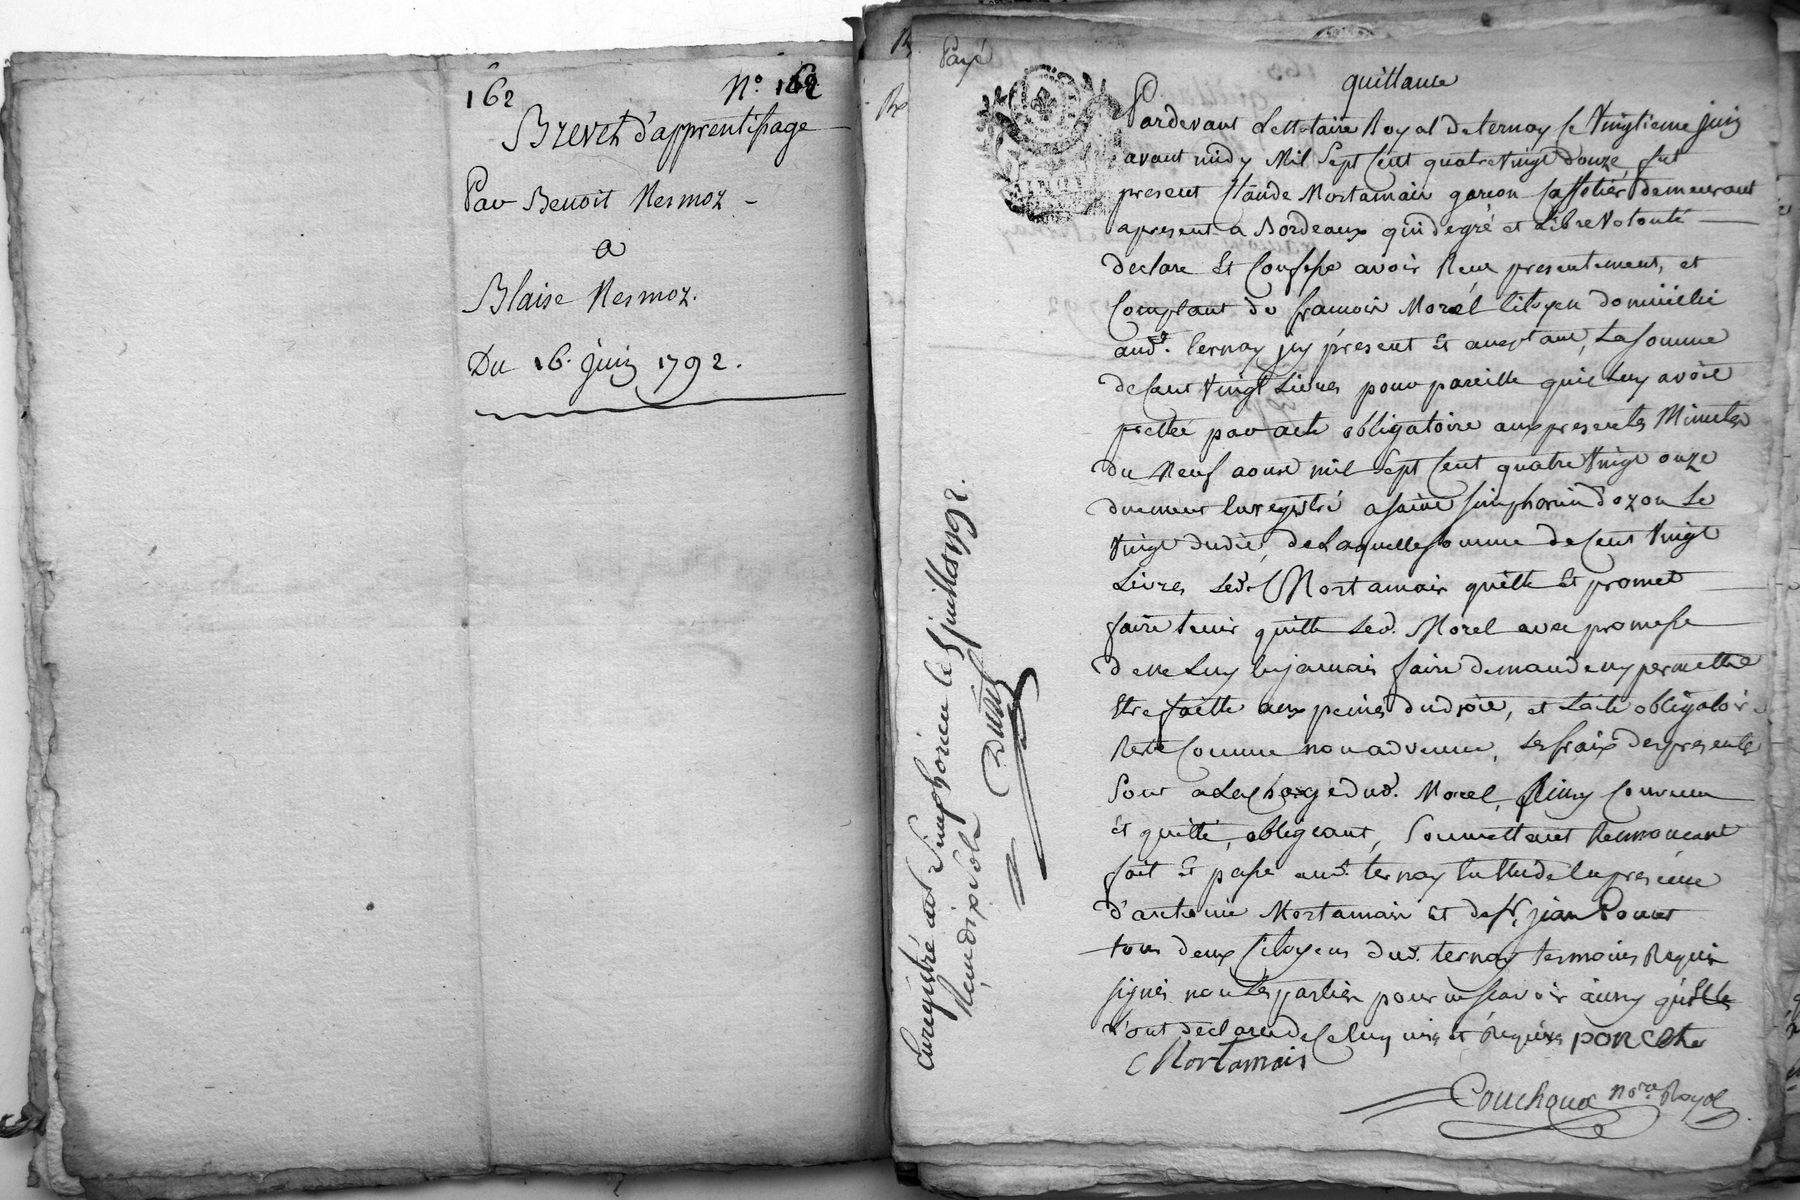 162
N.º 162
Brevet d'apprentissage
Par Benoit Nesmoz -
a
Blaise Nesmoz.
Du 16. juin 1792.
Payé
quittance
Pardevant Le Notaire Royal de ternay le Vingtieme juin
avant midy Mil Sept Cent quatre Vingt douze, fut
present Claude Mortamain garcon Caffetier demeurant
apresent a Bordeaux qui de gré et Libre Volonté
declare Et Confesse avoir Reçu presentement, et
Comptant de francois Morel Citoyen domicilié
aud.t ternay jcy présent Et acceptant, La Somme
de Cent Vingt Livres pour pareille qu'il Luy avoit
prettée par acte obligatoire aux presentes Minutes
du Neuf aoust mil Sept Cent quatre Vingt onze
duement Enregistré a saint simphorien d'ozon Le
Vingt dudit, de Laquelle Somme de Cent Vingt
Livres Led. Mortamain quitte Et promet
faire tenir quitte Led. Morel avec promesse
de ne Luy En jamais faire demande ny permettre
Etre faitte aux peines du droit, et L'acte obligatoire
Reste Comme non advenue, Les frais des presentes
Sont a La Charge dud. Morel, Ainsy Convenu
et quitté, obligeant, Soumettant Renoncant
fait Et passé aud. ternay En L'étude En presence
d'antoine Mortamain Et de Sr. jean Poncet
tous deux Citoyens dud. ternay temoins Requis
signés non Les parties pour ne scavoir ainsy qu'Elles
L'ont déclaré de Ce Enquises et Requises PONCET
Mortamais
Couchoux No.re Royal
Enregistré a St Simphorien le 5 juillet 1792.
Reçu dix sols